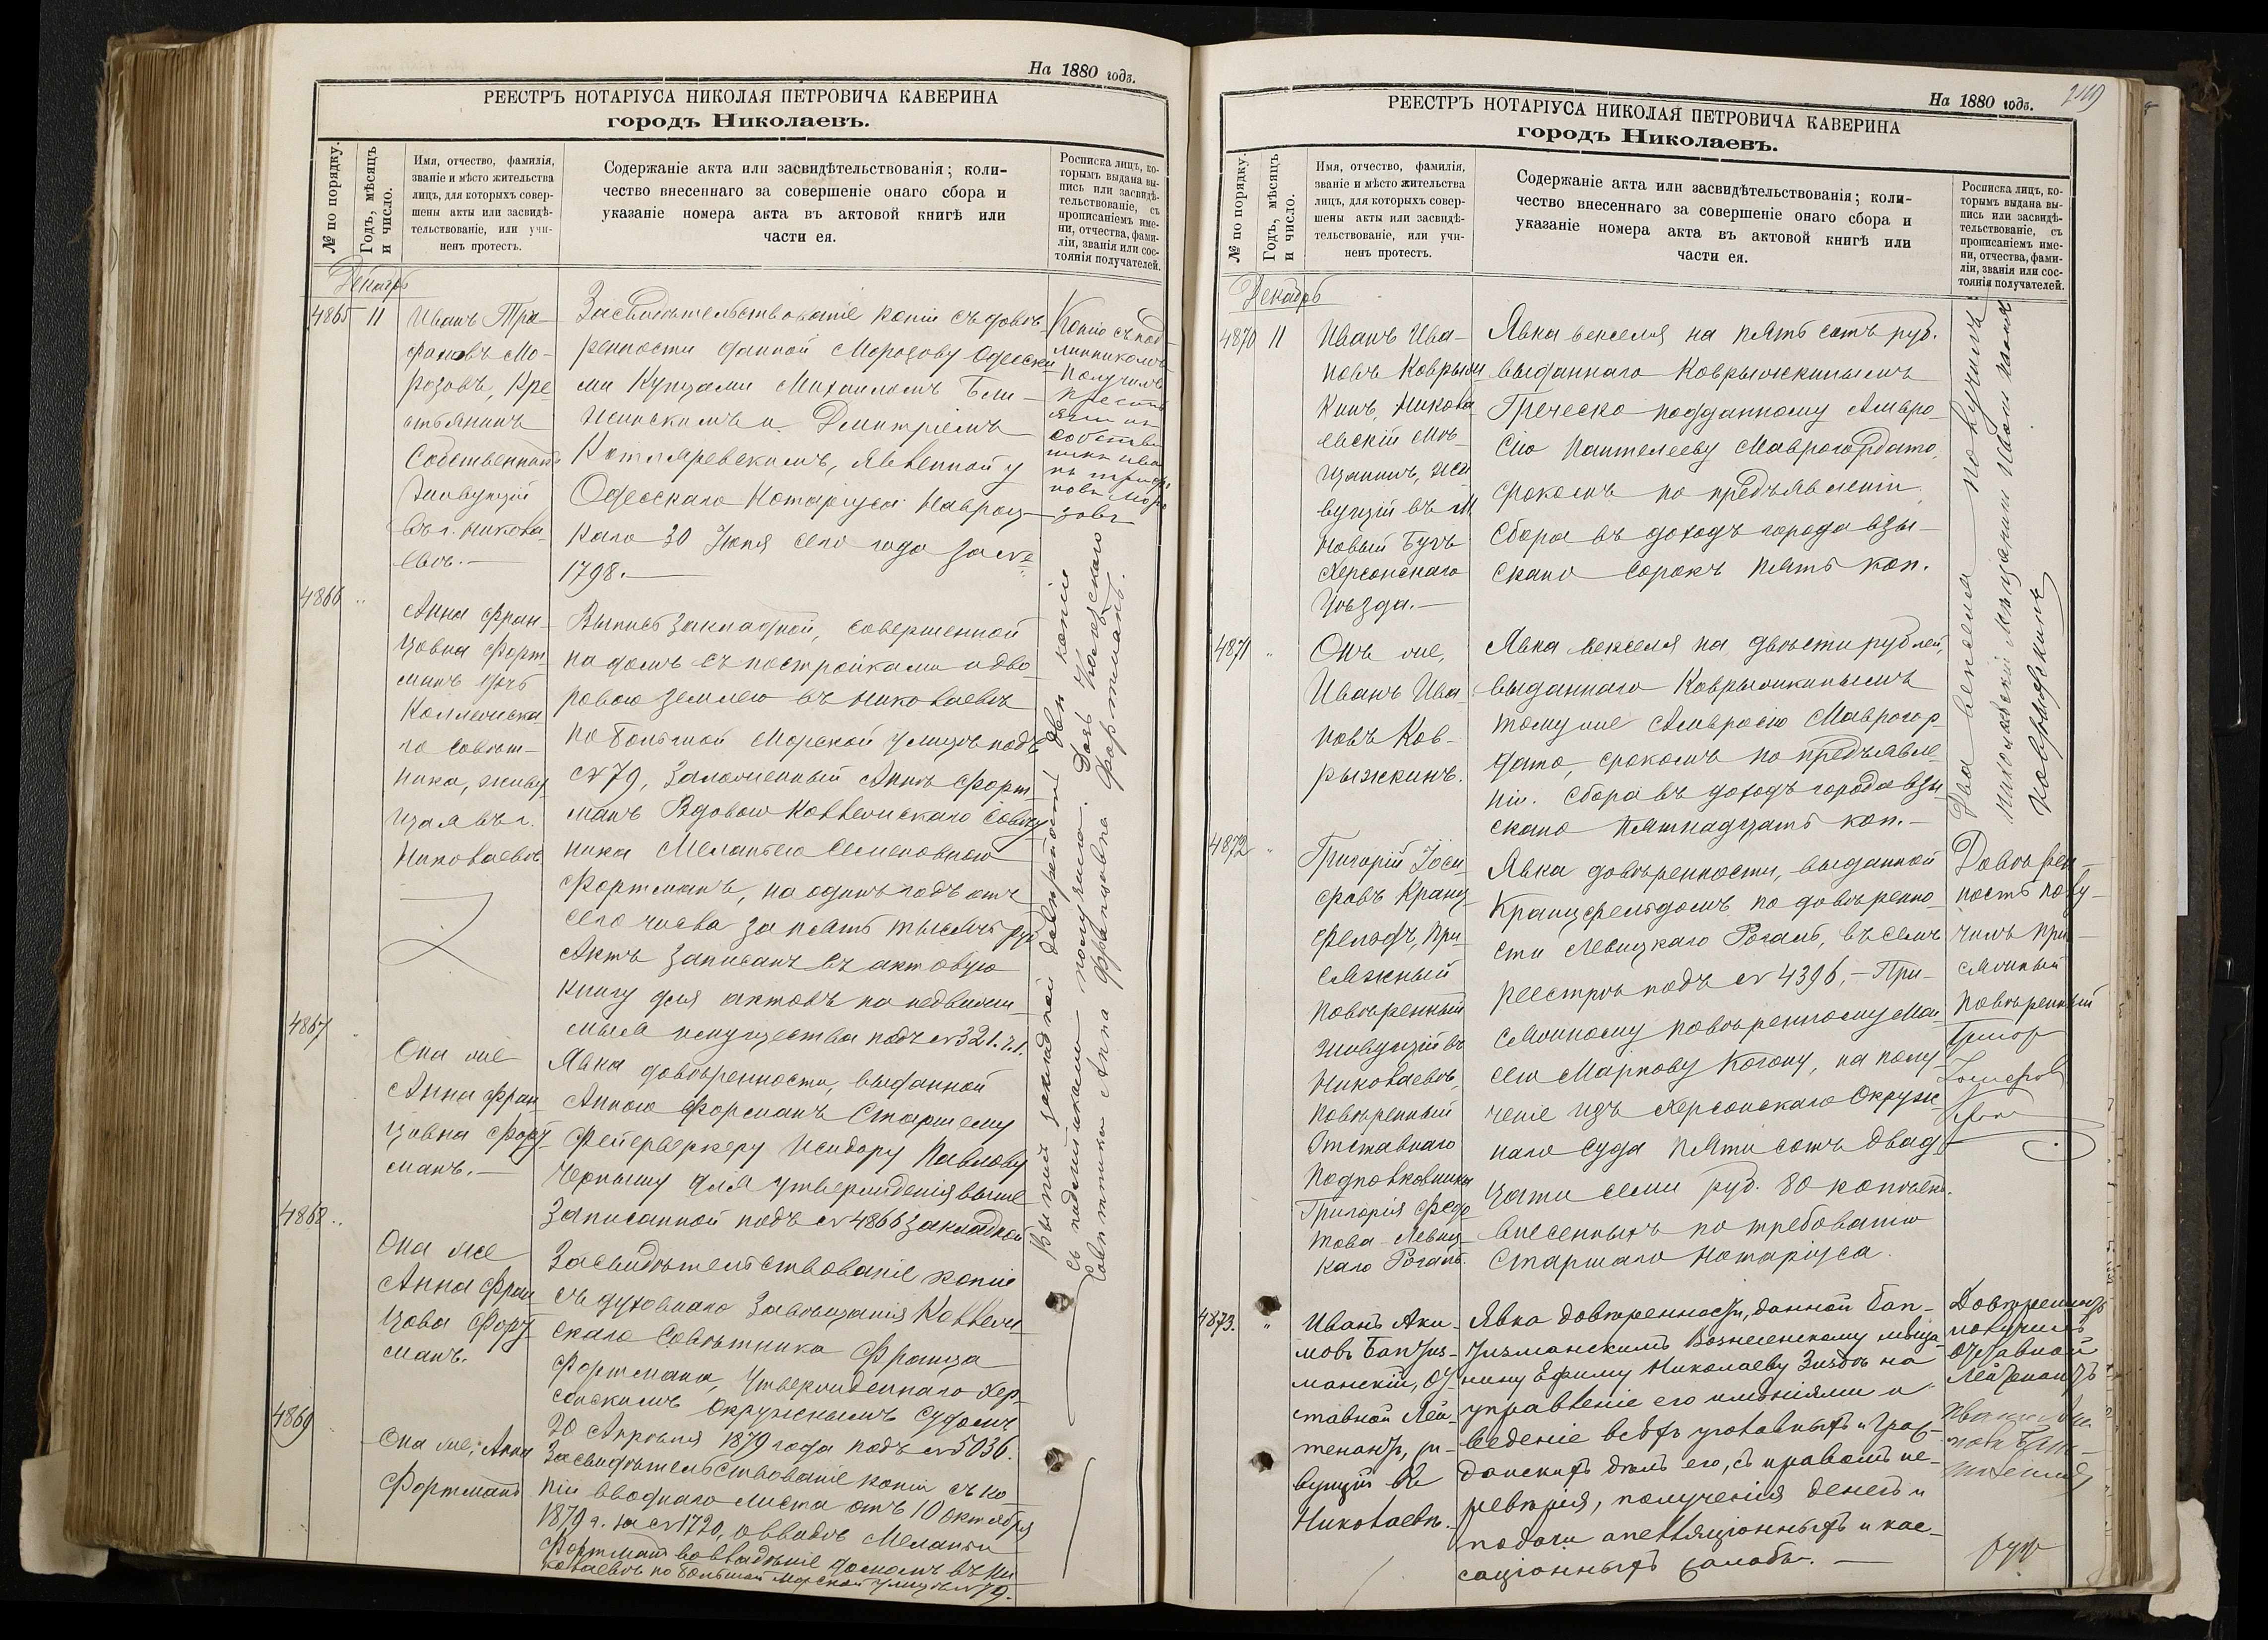 На 1880 годъ.
РЕЕСТРЪ НОТАРІУСА НИКОЛАЯ ПЕТРОВИЧА КАВЕРИНА
городъ Николаевъ.
№ по порядку.
Годъ, мѣсяцъ
и число.
Имя, отчество, фамилія,
званіе и мѣсто жительства
лицъ, для которыхъ совер-
шены акты или засвидѣ-
тельствованіе, или учи-
ненъ протестъ.
Содержаніе акта или засвидѣтельствованія; коли-
чество внесеннаго за совершеніе онаго сбора и
указаніе номера акта въ актовой книгѣ или
части ея.
Росписка лицъ, ко-
торымъ выдана вы-
пись или засвидѣ-
тельствованіе, съ
прописаніемъ име-
ни, отчества, фами-
ліи, званія или сос-
тоянія получателей.
Декабрь
4865 11
Иванъ Три-
фоновъ Мо-
розовъ, Кре
стьянинъ
Собственникъ
живущій
въ г. Никола-
евѣ.—
Засвидѣтельствованіе копіи съ довѣ
ренности данной Морозову Одесски
ми Купцами Михаиломъ
и Дмитріемъ
Котляревскимъ, явленной у
Одесскаго Нотаріуса Навроц-
каго 30 Іюня сего года за №
1798.—
Копію съ под-
линникомъ
получилъ
крестья
нинъ
собствен
никъ Ива
нъ Трифо
новъ Моро
зовъ
4866 "
Анна Фран-
цовна Форт-
манъ дочь
Коллежска
го Совѣт-
ника, живу
щая въ г.
Николаевѣ
Выпись закладной, совершенной
на домъ съ постройками и дво
ровою землею въ Николаевѣ
по Большой Морской улицѣ подъ
№ 79, заложенный Аннѣ Форт-
манъ Вдовою Коллежскаго Совѣт
ника Меланьею Семеновною
Фортманъ, на одинъ годъ отъ
сего числа за пять тысячъ руб
Актъ записанъ въ актовую
книгу для актовъ на недвижи-
мыя имущества подъ № 321. ч.1.
4867 "
Она же
Анна Фран
цовна Форт-
манъ.—
Явка довѣренности, выданной
Анною Форсманъ Старшему
Фейерверкеру Исидору Павлову
Черныму для утвержденія выше
записанной подъ № 4866 закладной
4868 "
Она же
Анна Фран
цова Форт-
манъ.
Засвидѣтельствованіе копіи
съ духовнаго завѣщанія Коллеж
скаго Совѣтника Франца
Фортмана, утвержденнаго Хер-
сонскимъ Окружнымъ Судомъ
20 Апрѣля 1879 года подъ № 5036.
4869
Она же, Анна
Фортманъ
Засвидѣтельствованіе копіи съ ко-
піи вводнаго листа отъ 10 Октября
1879 г. за № 1720, о вводѣ Меланьи
Фортманъ во владѣніе домомъ въ Ни
колаевѣ по Большой Морской улицѣ № 79.
Выпись закладной довѣренность двѣ копіи
съ подлинниками получила. Дочь Коллежскаго
Совѣтника Анна Францовна Фортманъ.
На 1880 годъ.
РЕЕСТРЪ НОТАРІУСА НИКОЛАЯ ПЕТРОВИЧА КАВЕРИНА
городъ Николаевъ.
№ по порядку.
Годъ, мѣсяцъ
и число.
Имя, отчество, фамилія,
званіе и мѣсто жительства
лицъ, для которыхъ совер-
шены акты или засвидѣ-
тельствованіе, или учи-
ненъ протестъ.
Содержаніе акта или засвидѣтельствованія; коли-
чество внесеннаго за совершеніе онаго сбора и
указаніе номера акта въ актовой книгѣ или
части ея.
Росписка лицъ, ко-
торымъ выдана вы-
пись или засвидѣ-
тельствованіе, съ
прописаніемъ име-
ни, отчества, фами-
ліи, званія или сос-
тоянія получателей.
Декабрь
4870 11
Иванъ Ива-
новъ Коврыж
кинъ, Никола
евскій Мѣ-
щанинъ, жи
вущій въ м.
Новый Бугъ
Херсонскаго
Уѣзда.—
Явка векселя на пять сотъ руб.
выданнаго Коврыжкинымъ
Греческо подданному Амвро-
сію Пантелееву Маврогордато,
срокомъ по предъявленіи.
Сбора въ доходъ города взы-
скано сорокъ пять коп.
4871 "
Онъ же,
Иванъ Ива
новъ Ков-
рыжкинъ.
Явка векселя на двѣсти рублей,
выданнаго Коврыжкинымъ
тому же Амвросію Маврогор-
дато, срокомъ по предъявле-
ніи. Сбора въ доходъ города взы-
скано пятнадцать коп.—
Два векселя получилъ
Николаевскій Мѣщанинъ Иванъ Ивановъ
Коврыжкинъ
4872 "
Григорій Іоси
фовъ Кранц-
фельдъ, При-
сяжный
Повѣренный
живущій въ
Николаевѣ,
повѣренный
Отставнаго
Подполковника
Григорія Федо
това Левиц-
каго Рогаль.
Явка довѣренности, выданной
Кранцфельдомъ по довѣренно-
сти Левицкаго Рогаль, въ семъ
реестрѣ подъ № 4396,— При-
сяжному повѣренному Мои
сею Маркову Когону, на полу-
ченіе изъ Херсонскаго Окруж-
наго Суда пяти сотъ двад-
цати семи руб. 80 копѣекъ.
внесенныхъ по требованію
Старшаго Нотаріуса.
Довѣрен-
ность полу-
чилъ При-
сяжный
Повѣренный
Григор
4873. "
Иванъ Аки-
мовъ
манскій, От-
ставной Лей-
тенантъ, жи-
вущій въ
Николаевѣ.
Явка довѣренности, данной
Вознесенскому мѣща-
нину Ефиму Николаеву на
управленіе его имѣніями и
веденіе всѣхъ уголовныхъ и граж-
данскихъ дѣлъ его, съ правомъ пе-
редовѣрія, полученія денегъ и
подачи апелляціонныхъ и кас-
саціонныхъ жалобъ.—
Довѣренность
получилъ
отставной
Лейтенантъ